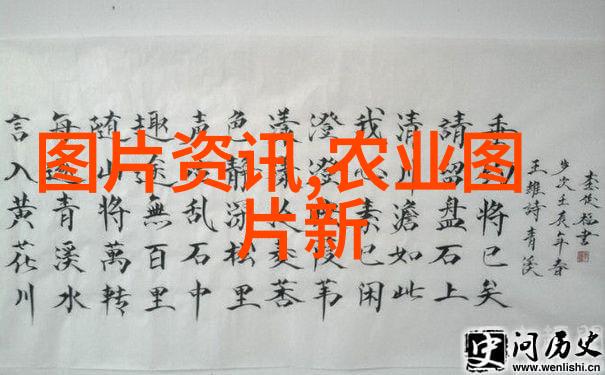 图片资讯,农业图
片新
言入黄花川
每逐青溪水
随山將萬转
趣途無百里
声乱石中
色静深松里
漾
澄澄葭苇
我心素已闲
清川澹如此
請留盘石上
垂将已矣
岁次壬辰年春
王維詩青溪
问历史
www.wenlishi.cn